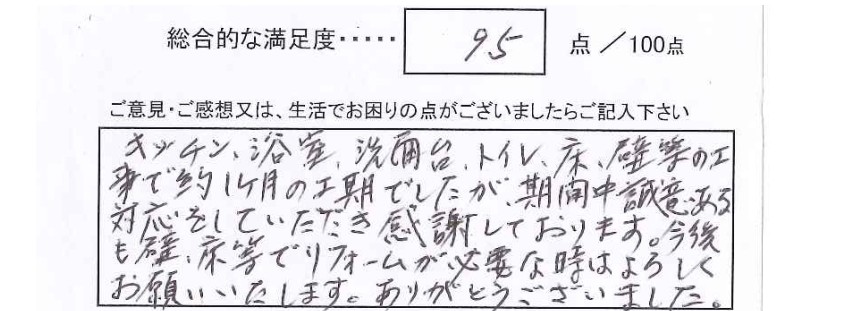 総合的な満足度・・・・・ 95 点 ／100点
ご意見・ご感想又は、生活でお困りの点がございましたらご記入下さい
キッチン、浴室、洗面台、トイレ、床、壁等の工
事で約1ケ月の工期でしたが、期間中誠意ある
対応をしていただき感謝しております。今後
も壁、床等でリフォームが必要な時はよろしく
お願いいたします。ありがとうございました。